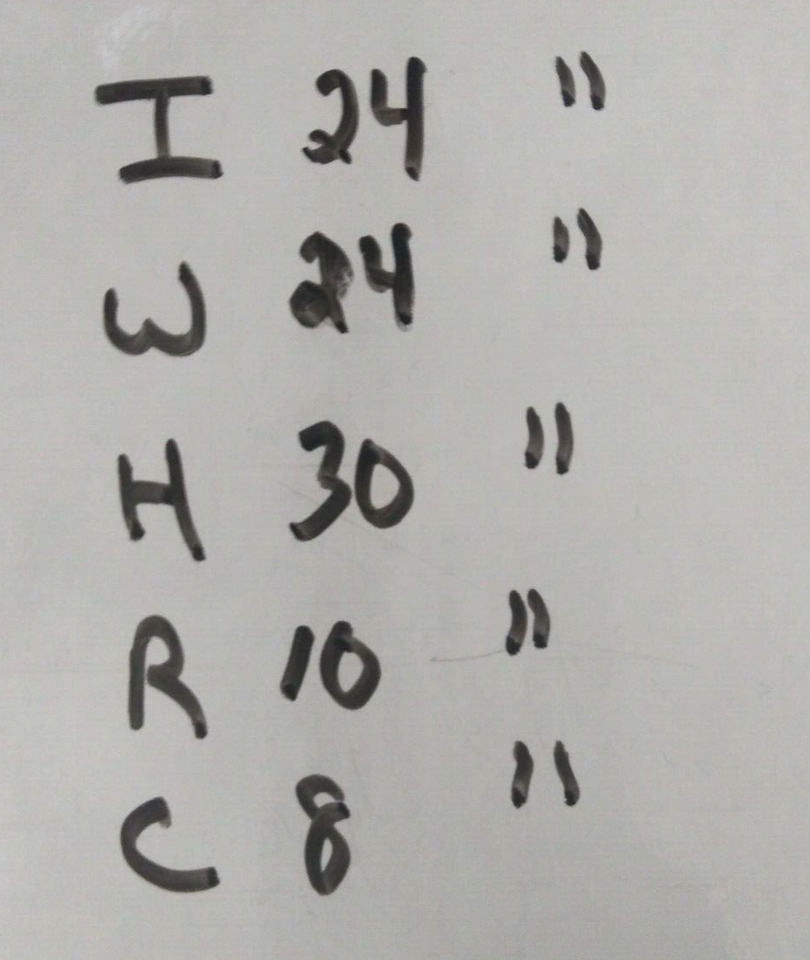 I 24 "
W 24 "
H 30 "
R 10 "
C 8 "